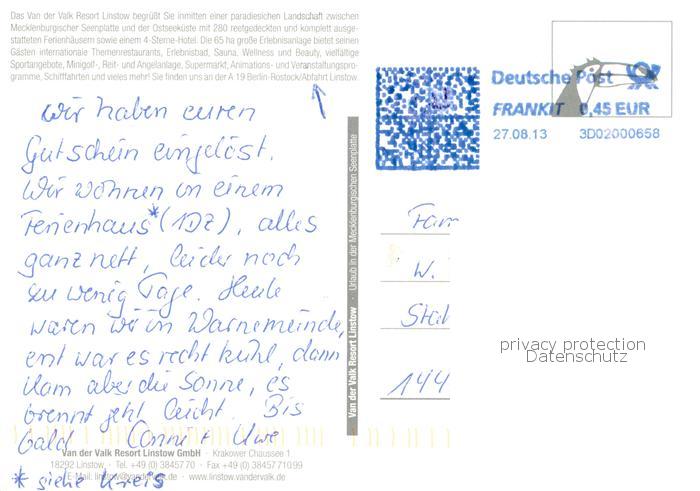 Das Van der Valk Resort Linstow begrüßt Sie inmitten einer paradiesichen Landschaft zwischen
Mecklenburgischer Seenplatte und der Ostseeküste mit 280 reetgedeckten und komplett ausge-
statteten Ferienhäusern sowie einem 4-Sterne-Hotel. Die 65 ha große Erlebnisanlage bietet seinen
Gästen internationale Themenrestaurants, Erlebnisbad, Sauna, Wellness und Beauty, vielfältige
Sportangebote, Minigolf-, Reit- und Angelanlage, Supermarkt, Animations- und Veranstaltungspro-
gramme, Schifffahrten und vieles mehr! Sie finden uns an der A 19 Berlin-Rostock/Abfahrt Linstow.
Wir haben euren
Gutschein eingelöst.
Wir wohnen in einem
Ferienhaus* (1DZ), alles
ganz nett, leider noch
zu wenig Tage. Heute
waren wir in Warnemünde,
erst war es recht kühl, dann
kam aber die Sonne, es
brennt jetzt leicht. Bis
bald Conni + Uwe
Van der Valk Resort Linstow GmbH · Krakower Chaussee 1
18292 Linstow · Tel. +49 (0) 3845770 · Fax +49 (0) 384577 10 99
E-Mail: linstow@vandervalk.de · www.linstow.vandervalk.de
* siehe Kreis
Van der Valk Resort Linstow · Urlaub in der Mecklenburgischen Seenplatte
Deutsche Post
FRANKIT 0,45 EUR
27.08.13 3D02000658
Fam
W.
144
privacy protection
Datenschutz